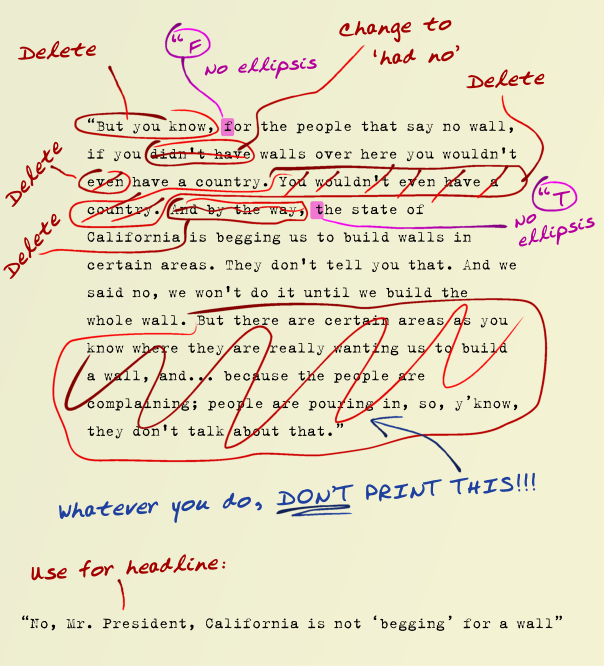 Delete
"F
No ellipsis
Change to
'had no'
Delete
"But you know, for the people that say no wall,
if you didn't have walls over here you wouldn't
even have a country. You wouldn't even have a
country. And by the way, the state of
California is begging us to build walls in
certain areas. They don't tell you that. And we
said no, we won't do it until we build the
whole wall. But there are certain areas as you
know where they are really wanting us to build
a wall, and... because the people are
complaining; people are pouring in, so, y'know,
they don't talk about that."
Delete
Delete
"T
No
ellipsis
Whatever you do, DON'T PRINT THIS!!!
Use for headline:
"No, Mr. President, California is not 'begging' for a wall"